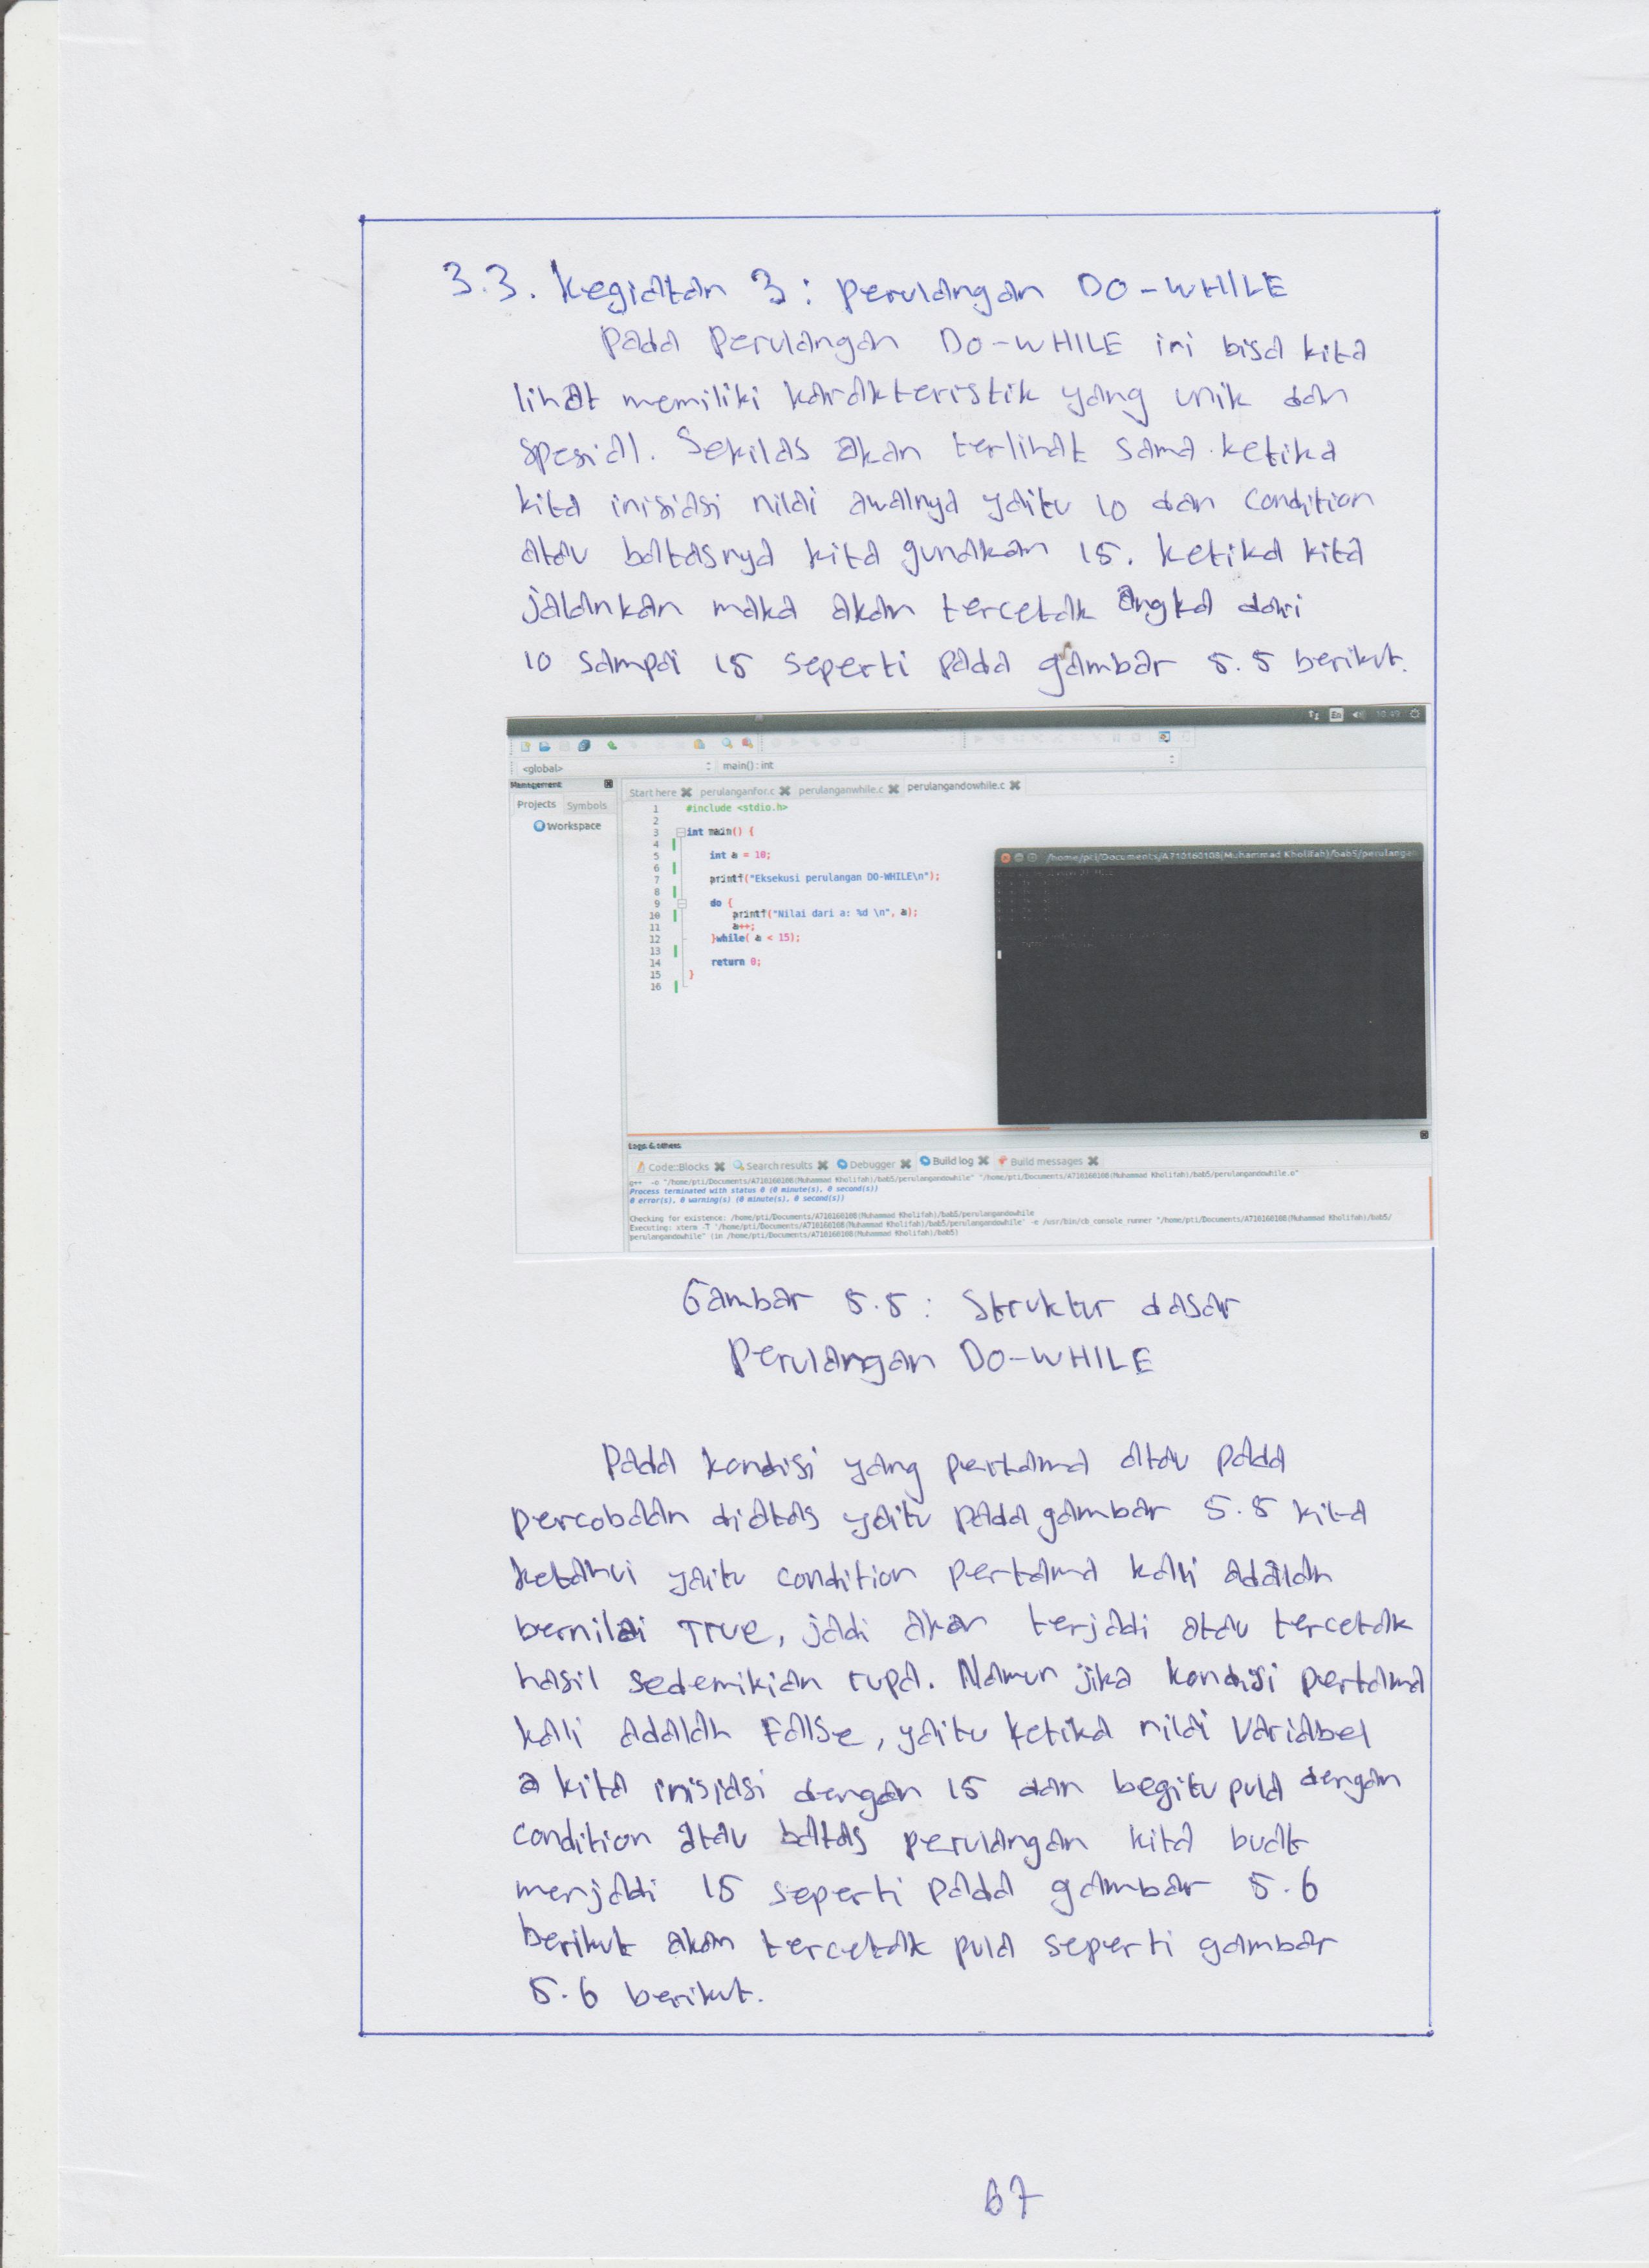 3.3. Kegiatan 3 : Perulangan DO-WHILE
Pada Perulangan DO-WHILE ini bisa kita
lihat memiliki karakteristik yang unik dan
spesial. Sekilas akan terlihat sama ketika
kita inisiasi nilai awalnya yaitu 10 dan condition
atau batasnya kita gunakan 15. ketika kita
jalankan maka akan tercetak angka dari
10 sampai 15 seperti pada gambar 5.5 berikut.
En 10:49
<global> main() : int
Management
Projects Symbols
Workspace
Start here perulanganfor.c perulanganwhile.c perulangandowhile.c
1 #include <stdio.h>
2
3 int main() {
4
5 int a = 10;
6
7 printf("Eksekusi perulangan DO-WHILE\n");
8
9 do {
10 printf("Nilai dari a: %d \n", a);
11 a++;
12 }while( a < 15);
13
14 return 0;
15 }
16
/home/pti/Documents/A710160108(Muhammad Kholifah)/bab5/perulangan
Logs & others
Code::Blocks Search results Debugger Build log Build messages
g++ -o "/home/pti/Documents/A710160108(Muhammad Kholifah)/bab5/perulangandowhile" "/home/pti/Documents/A710160108(Muhammad Kholifah)/bab5/perulangandowhile.o"
Process terminated with status 0 (0 minute(s), 0 second(s))
0 error(s), 0 warning(s) (0 minute(s), 0 second(s))
Checking for existence: /home/pti/Documents/A710160108(Muhammad Kholifah)/bab5/perulangandowhile
Executing: xterm -T '/home/pti/Documents/A710160108(Muhammad Kholifah)/bab5/perulangandowhile' -e /usr/bin/cb_console_runner "/home/pti/Documents/A710160108(Muhammad Kholifah)/bab5/
perulangandowhile" (in /home/pti/Documents/A710160108(Muhammad Kholifah)/bab5)
Gambar 5.5 : Struktur dasar
Perulangan DO-WHILE
Pada kondisi yang pertama atau pada
percobaan diatas yaitu pada gambar 5.5 kita
ketahui yaitu condition pertama kali adalah
bernilai True, jadi akan terjadi atau tercetak
hasil sedemikian rupa. Namun jika kondisi pertama
kali adalah False, yaitu ketika nilai variabel
a kita inisiasi dengan 15 dan begitu pula dengan
condition atau batas perulangan kita buat
menjadi 15 seperti pada gambar 5.6
berikut akan tercetak pula seperti gambar
5.6 berikut.
67